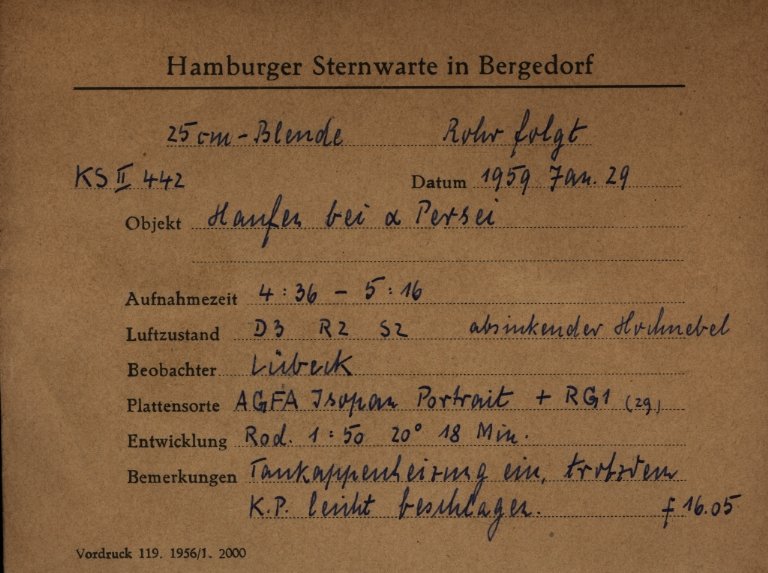 Hamburger Sternwarte in Bergedorf
25 cm - Blende Rohr folgt
KS II 442 Datum 1959 Jan. 29
Objekt Haufen bei α Persei
Aufnahmezeit 4:36 - 5:16
Luftzustand D3 R2 S2 absinkender Hochnebel
Beobachter Lübeck
Plattensorte AGFA Isopan Portrait + RG1 (29)
Entwicklung Rod. 1:50 20° 18 Min.
Bemerkungen Taukappenheizung ein, trotzdem
K.P. leicht beschlagen. f 16.05
Vordruck 119. 1956/1. 2000